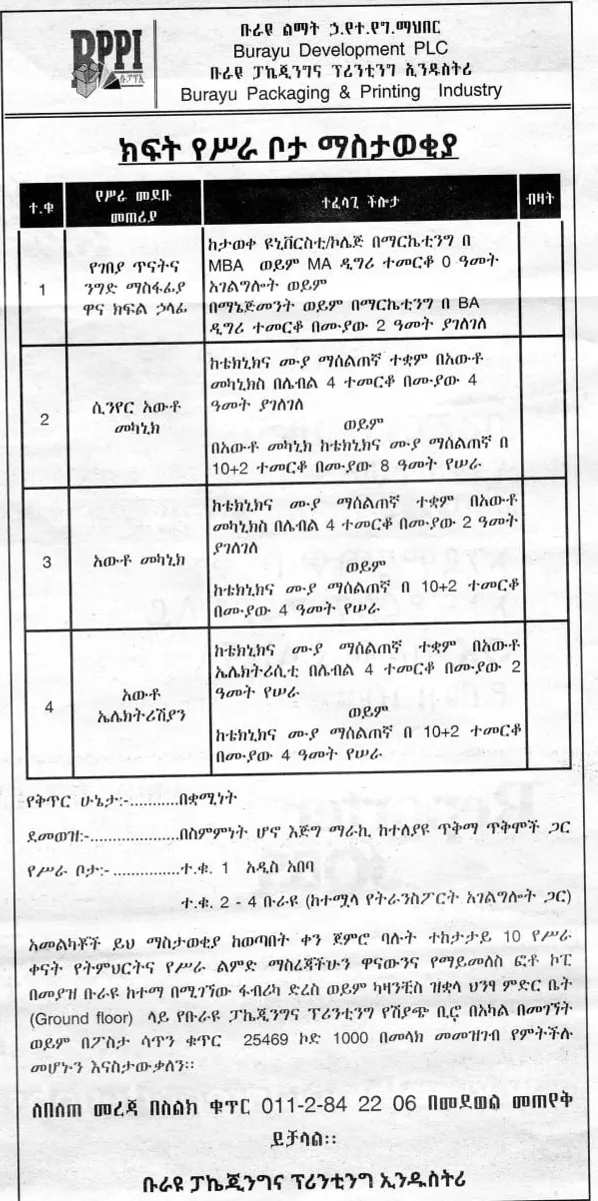 BPPI
ቡፓፕኢ
ቡራዩ ልማት ኃ.የተ.የግ.ማህበር
Burayu Development PLC
ቡራዩ ፓኬጂንግና ፕሪንቲንግ ኢንዱስትሪ
Burayu Packaging & Printing Industry
ክፍት የሥራ ቦታ ማስታወቂያ
ተ.ቁ
የሥራ መደቡ
መጠሪያ
ተፈላጊ ችሎታ
ብዛት
1
የገበያ ጥናትና
ንግድ ማስፋፊያ
ዋና ክፍል ኃላፊ
ከታወቀ ዩኒቨርስቲ/ኮሌጅ በማርኬቲንግ በ
MBA ወይም MA ዲግሪ ተመርቆ 0 ዓመት
አገልግሎት ወይም
በማኔጅመንት ወይም በማርኬቲንግ በ BA
ዲግሪ ተመርቆ በሙያው 2 ዓመት ያገለገለ
2
ሲንየር አውቶ
መካኒክ
ከቴክኒክና ሙያ ማሰልጠኛ ተቋም በአውቶ
መካኒክስ በሌብል 4 ተመርቆ በሙያው 4
ዓመት ያገለገለ
ወይም
በአውቶ መካኒክ ከቴክኒክና ሙያ ማሰልጠኛ በ
10+2 ተመርቆ በሙያው 8 ዓመት የሠራ
3
አውቶ መካኒክ
ከቴክኒክና ሙያ ማሰልጠኛ ተቋም በአውቶ
መካኒክስ በሌብል 4 ተመርቆ በሙያው 2 ዓመት
ያገለገለ
ወይም
ከቴክኒክና ሙያ ማሰልጠኛ በ 10+2 ተመርቆ
በሙያው 4 ዓመት የሠራ
4
አውቶ
ኤሌክትሪሽያን
ከቴክኒክና ሙያ ማሰልጠኛ ተቋም በአውቶ
ኤሌክትሪሲቲ በሌብል 4 ተመርቆ በሙያው 2
ዓመት የሠራ
ወይም
ከቴክኒክና ሙያ ማሰልጠኛ በ 10+2 ተመርቆ
በሙያው 4 ዓመት የሠራ
የቅጥር ሁኔታ:-...........በቋሚነት
ደመወዝ:-....................በስምምነት ሆኖ እጅግ ማራኪ ከተለያዩ ጥቅማ ጥቅሞች ጋር
የሥራ ቦታ:- ...............ተ.ቁ. 1 አዲስ አበባ
ተ.ቁ. 2 - 4 ቡራዩ (ከተሟላ የትራንስፖርት አገልግሎት ጋር)
አመልካቾች ይህ ማስታወቂያ ከወጣበት ቀን ጀምሮ ባሉት ተከታታይ 10 የሥራ
ቀናት የትምህርትና የሥራ ልምድ ማስረጃችሁን ዋናውንና የማይመለስ ፎቶ ኮፒ
በመያዝ ቡራዩ ከተማ በሚገኘው ፋብሪካ ድረስ ወይም ካዛንቺስ ዝቋላ ህንፃ ምድር ቤት
(Ground floor) ላይ የቡራዩ ፓኬጂንግና ፕሪንቲንግ የሽያጭ ቢሮ በአካል በመገኘት
ወይም በፖስታ ሳጥን ቁጥር 25469 ኮድ 1000 በመላክ መመዝገብ የምትችሉ
መሆኑን እናስታውቃለን።
ለበለጠ መረጃ በስልክ ቁጥር 011-2-84 22 06 በመደወል መጠየቅ
ይቻላል።
ቡራዩ ፓኬጂንግና ፕሪንቲንግ ኢንዱስትሪ